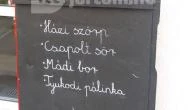 • Házi szörp
• Csapolt sör
• Mádi bor
• Tyukodi pálinka